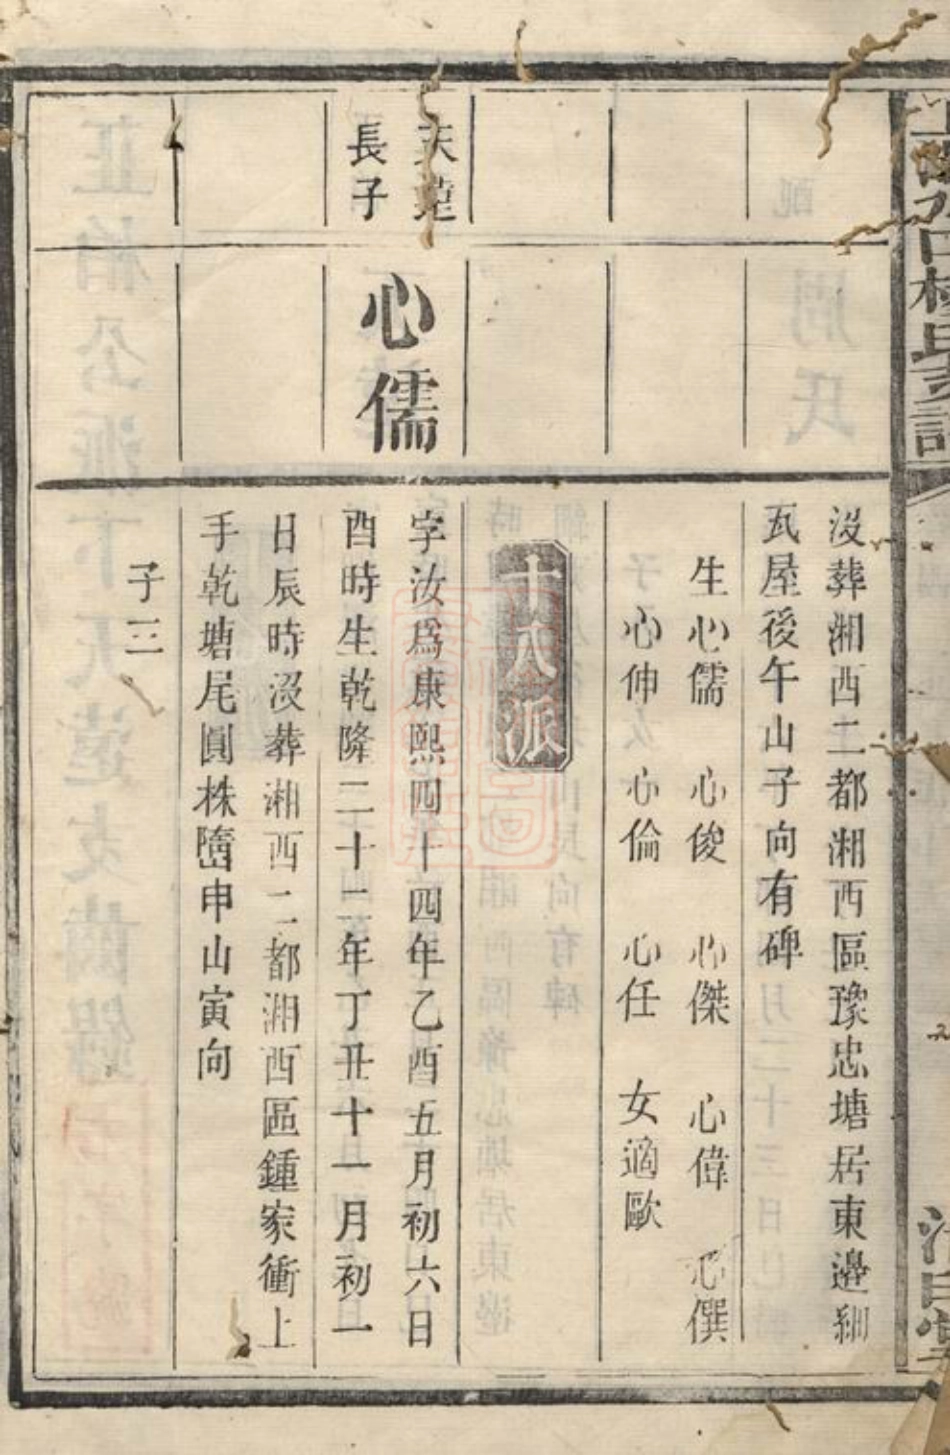 沒葬湘西二都湘西區豫忠塘居東邊細
瓦屋後午山子向有碑
生心儒 心俊 心傑 心偉 心僎
心伸 心倫 心任 女適歐
十六派
天達
長子
心儒
字汝爲康熙四十四年乙酉五月初六日
酉時生乾隆二十二年丁丑十一月初一
日辰時沒葬湘西二都湘西區鍾家衝上
手乾塘尾圓株墮申山寅向
子三